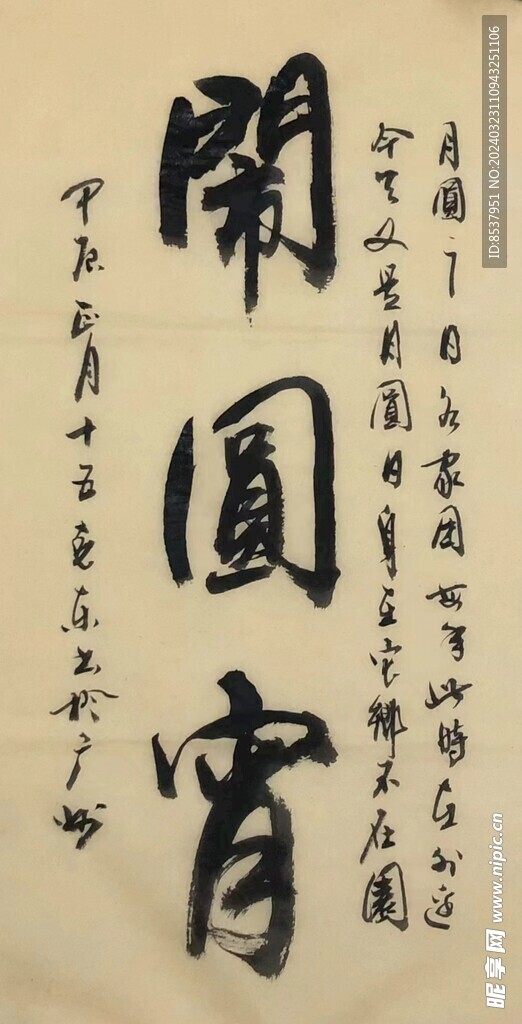 月圓之日各家每年此時在外
今天又是月圓日身在它鄉不在園
閙圓宵
甲辰正月十五东书於广州
ID:8537951 NO:20240323110943251106
昵享网 www.nipic.cn